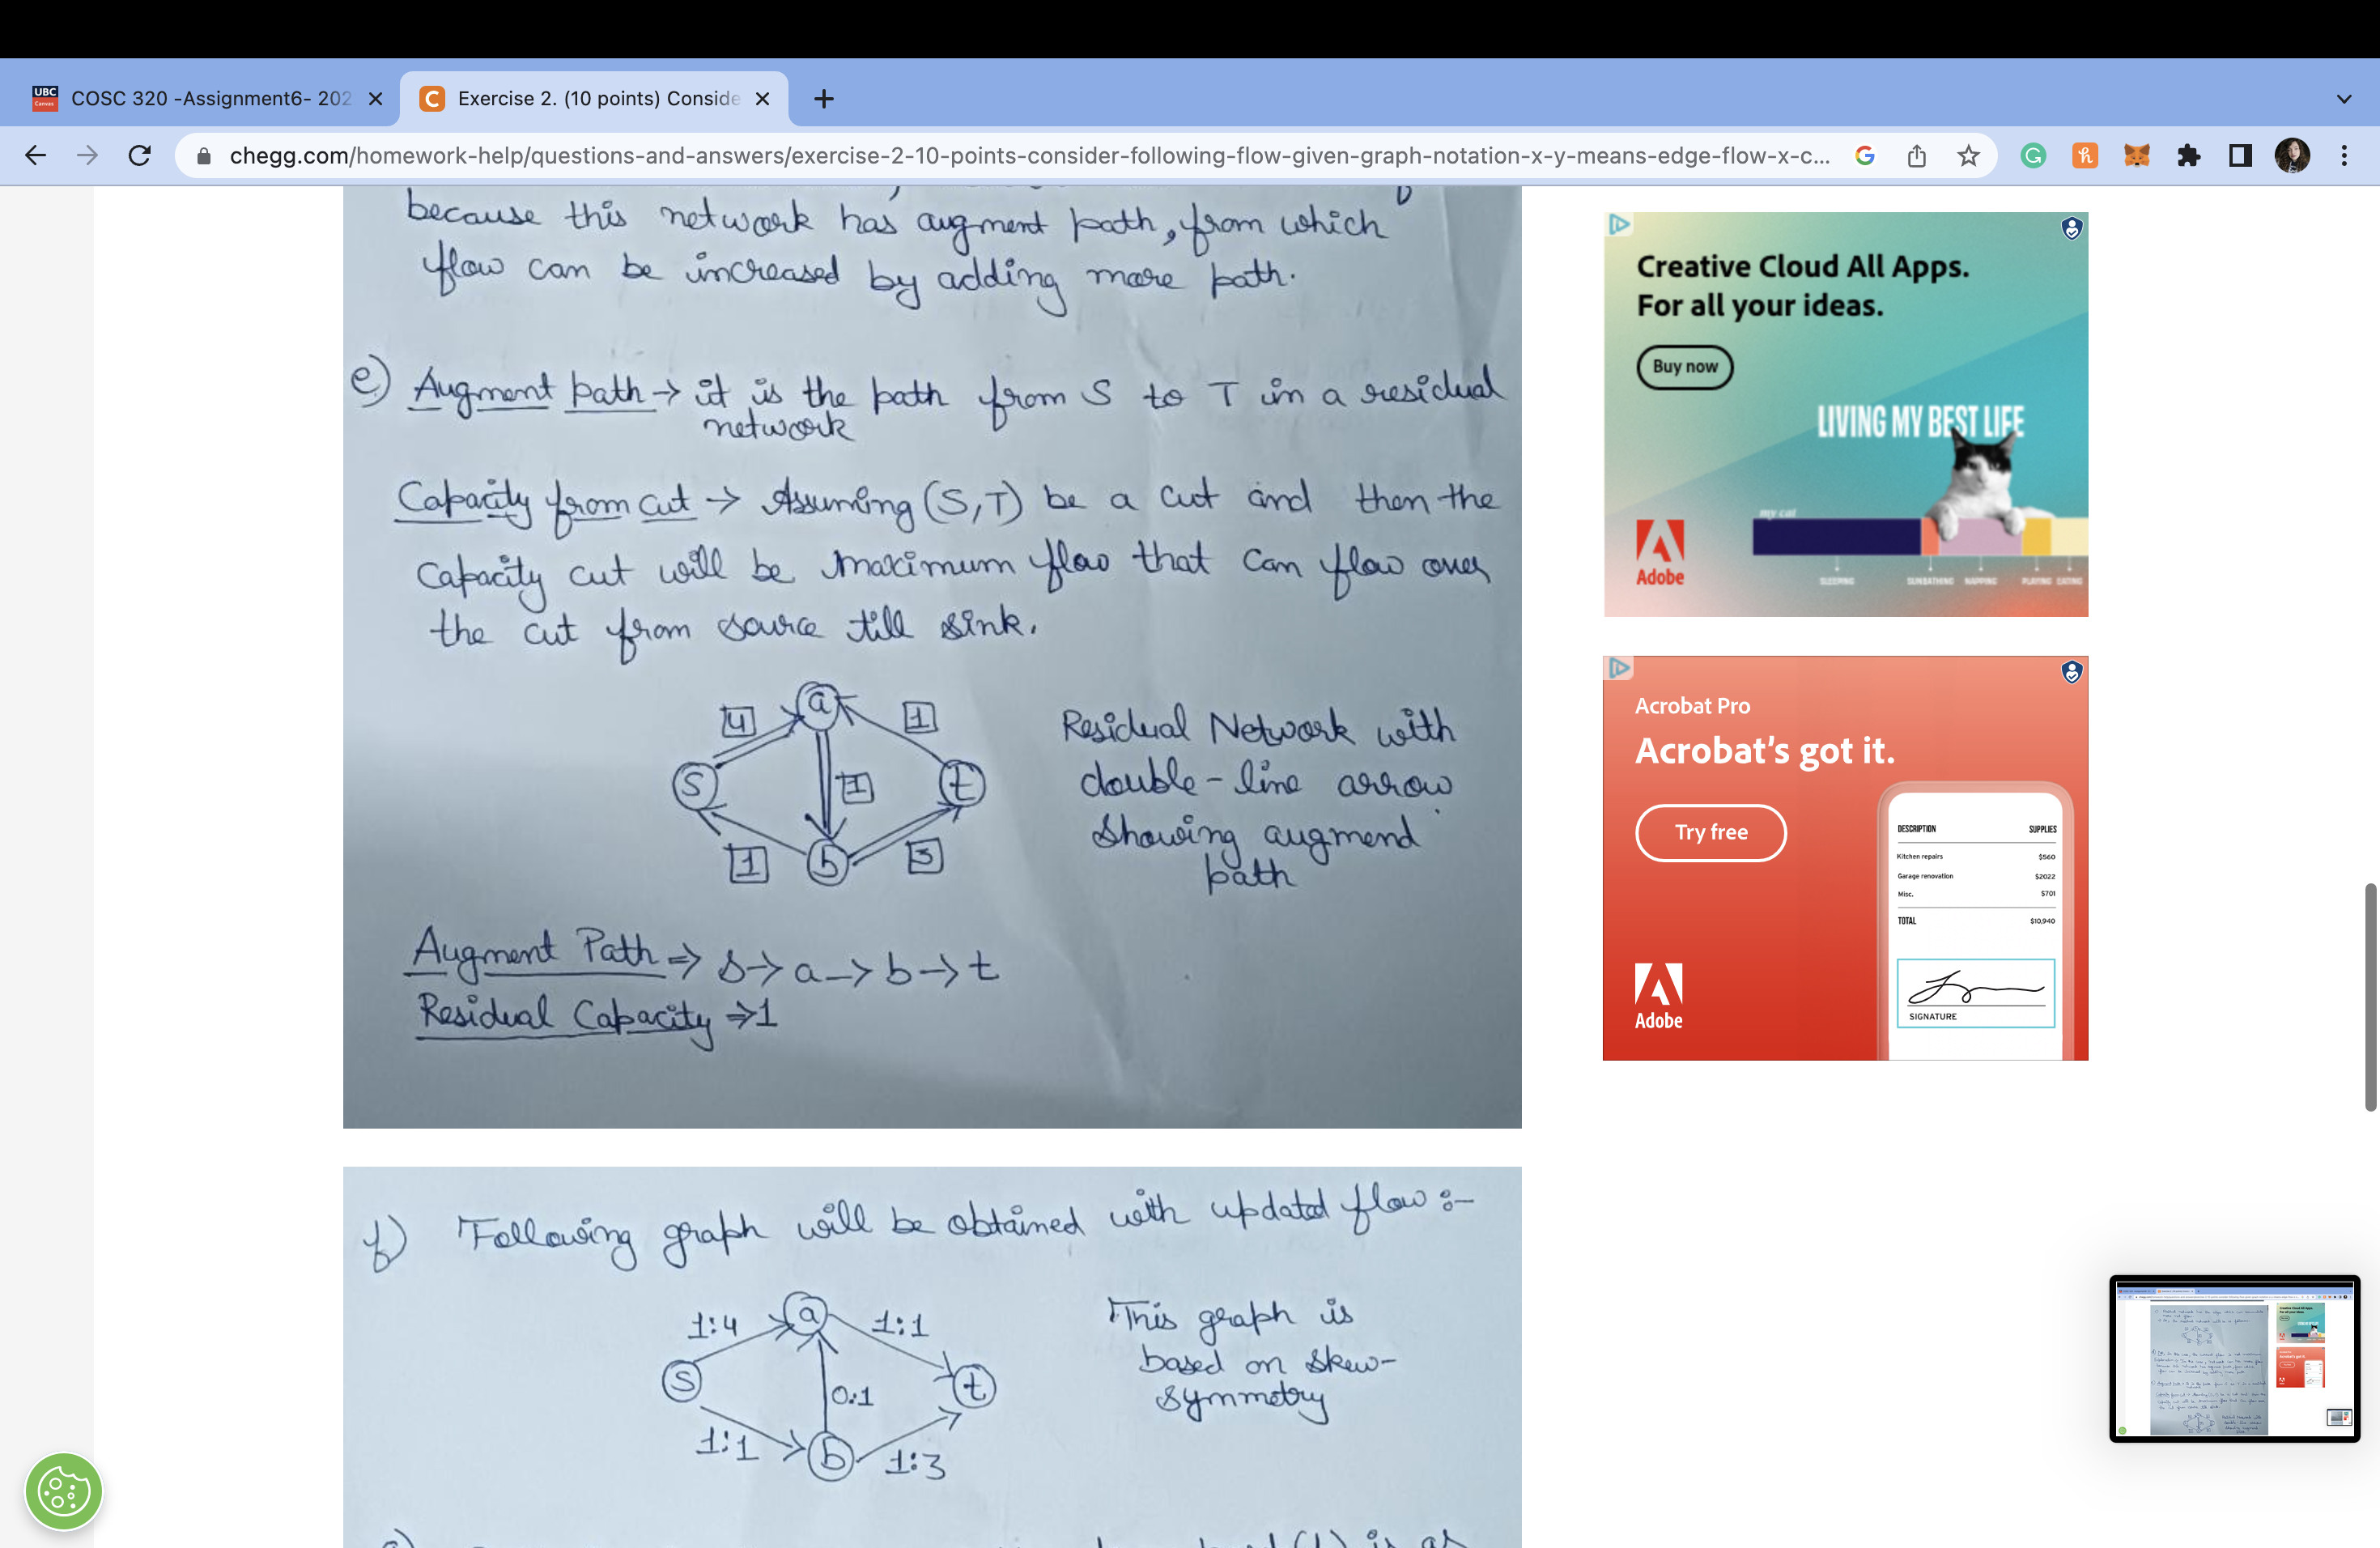 UBC
Canvas
COSC 320 -Assignment6- 202
Exercise 2. (10 points) Conside
chegg.com/homework-help/questions-and-answers/exercise-2-10-points-consider-following-flow-given-graph-notation-x-y-means-edge-flow-x-c...
because this network has augment path, from which
flow can be increased by adding more path.
e) Augment path → it is the path from S to T in a residual
network
Capacity from cut → Assuming (S,T) be a cut and then the
Capacity cut will be maximum flow that can flow over
the cut from source till sink.
a
4
1
S
1
t
1
b
3
Residual Network with
double-line arrow
showing augmend
path
Augment Path ⇒ s→a→b→t
Residual Capacity ⇒1
f) Following graph will be obtained with updated flow :-
a
1:4
1:1
S
0:1
t
1:1
b
1:3
This graph is
based on skew-
symmetry
Creative Cloud All Apps.
For all your ideas.
Buy now
LIVING MY BEST LIFE
my cat
Adobe
SLEEPING SUNBATHING NAPPING PLAYING EATING
Acrobat Pro
Acrobat's got it.
Try free
DESCRIPTION SUPPLIES
Kitchen repairs $560
Garage renovation $2022
Misc. $701
TOTAL $10,940
SIGNATURE
Adobe